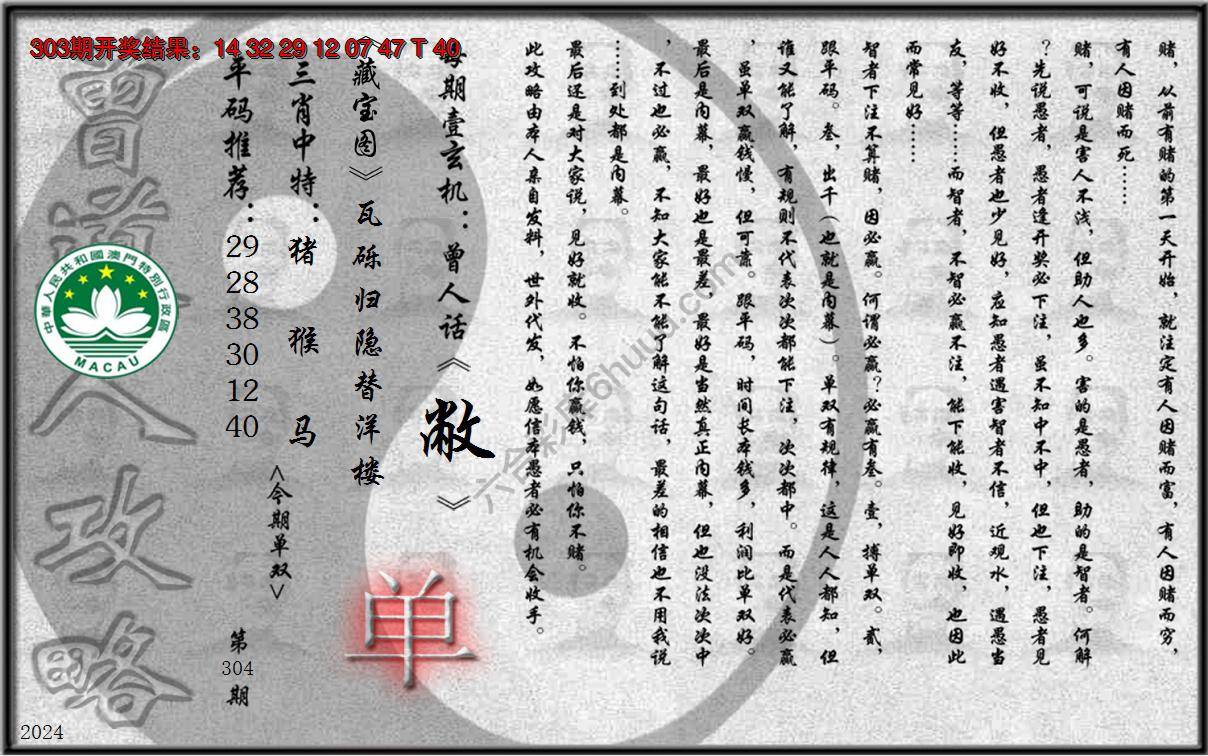 303期开奖结果：14 32 29 12 07 47 T 40
赌，从前有赌的第一天开始，就注定有人因赌而富，有人因赌而穷，
有人因赌而死……
赌，可说是害人不浅，但助人也多。害的是愚者，助的是智者。何解
？先说愚者，愚者逢开奖必下注，虽不知中不中，但也下注，愚者见
好不收，但愚者也少见好，应知愚者遇害智者不信，近观水，遇愚当
友，等等……而智者，不智必赢不注，能下能收，见好即收，也因此
而常见好……
智者下注不算赌，因必赢。何谓必赢？必赢有叁。壹，搏单双。贰，
跟平码。叁，出千（也就是内幕）。单双有规律，这是人人都知，但
谁又能了解，有规则不代表次次都能下注，次次都中。而是代表必赢
，虽单双赢钱慢，但可靠。跟平码，时间长本钱多，利润比单双好。
最后是内幕，最好也是最差，最好是当然真正内幕，但也没法次次中
，不过也必赢，不知大家能不能了解这句话，最差的相信也不用我说
……到处都是内幕。
最后还是对大家说，见好就收。不怕你赢钱，只怕你不赌。
此攻略由本人亲自发料，世外代发，如愿信本愚者必有机会收手。
每期壹玄机：曾人话《敝》
《藏宝图》瓦砾归隐替洋楼
三肖中特：猪 猴 马
平码推荐：29 28 38 30 12 40
<今期单双>
单
第304期
曾道人攻略
中華人民共和國澳門特別行政區
MACAU
六合彩库6huuu.com
2024